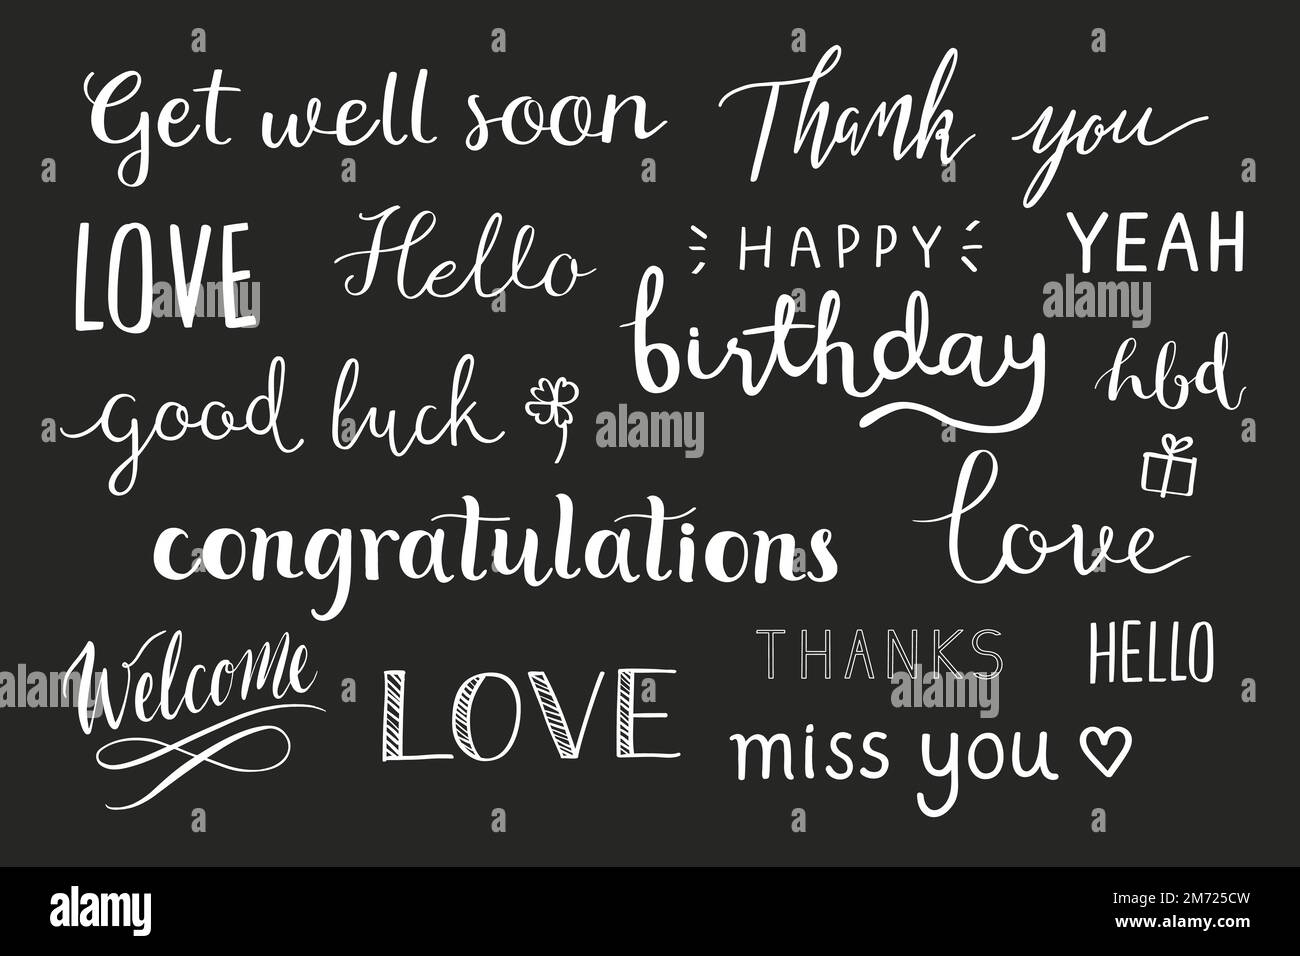 Get well soon
Thank you
LOVE
Hello
HAPPY
birthday
YEAH
hbd
good luck
love
congratulations
Welcome
LOVE
THANKS
HELLO
miss you
alamy
Image ID: 2M725CW
www.alamy.com